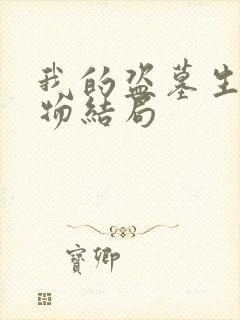 我的盗墓生
物结局
宝卿